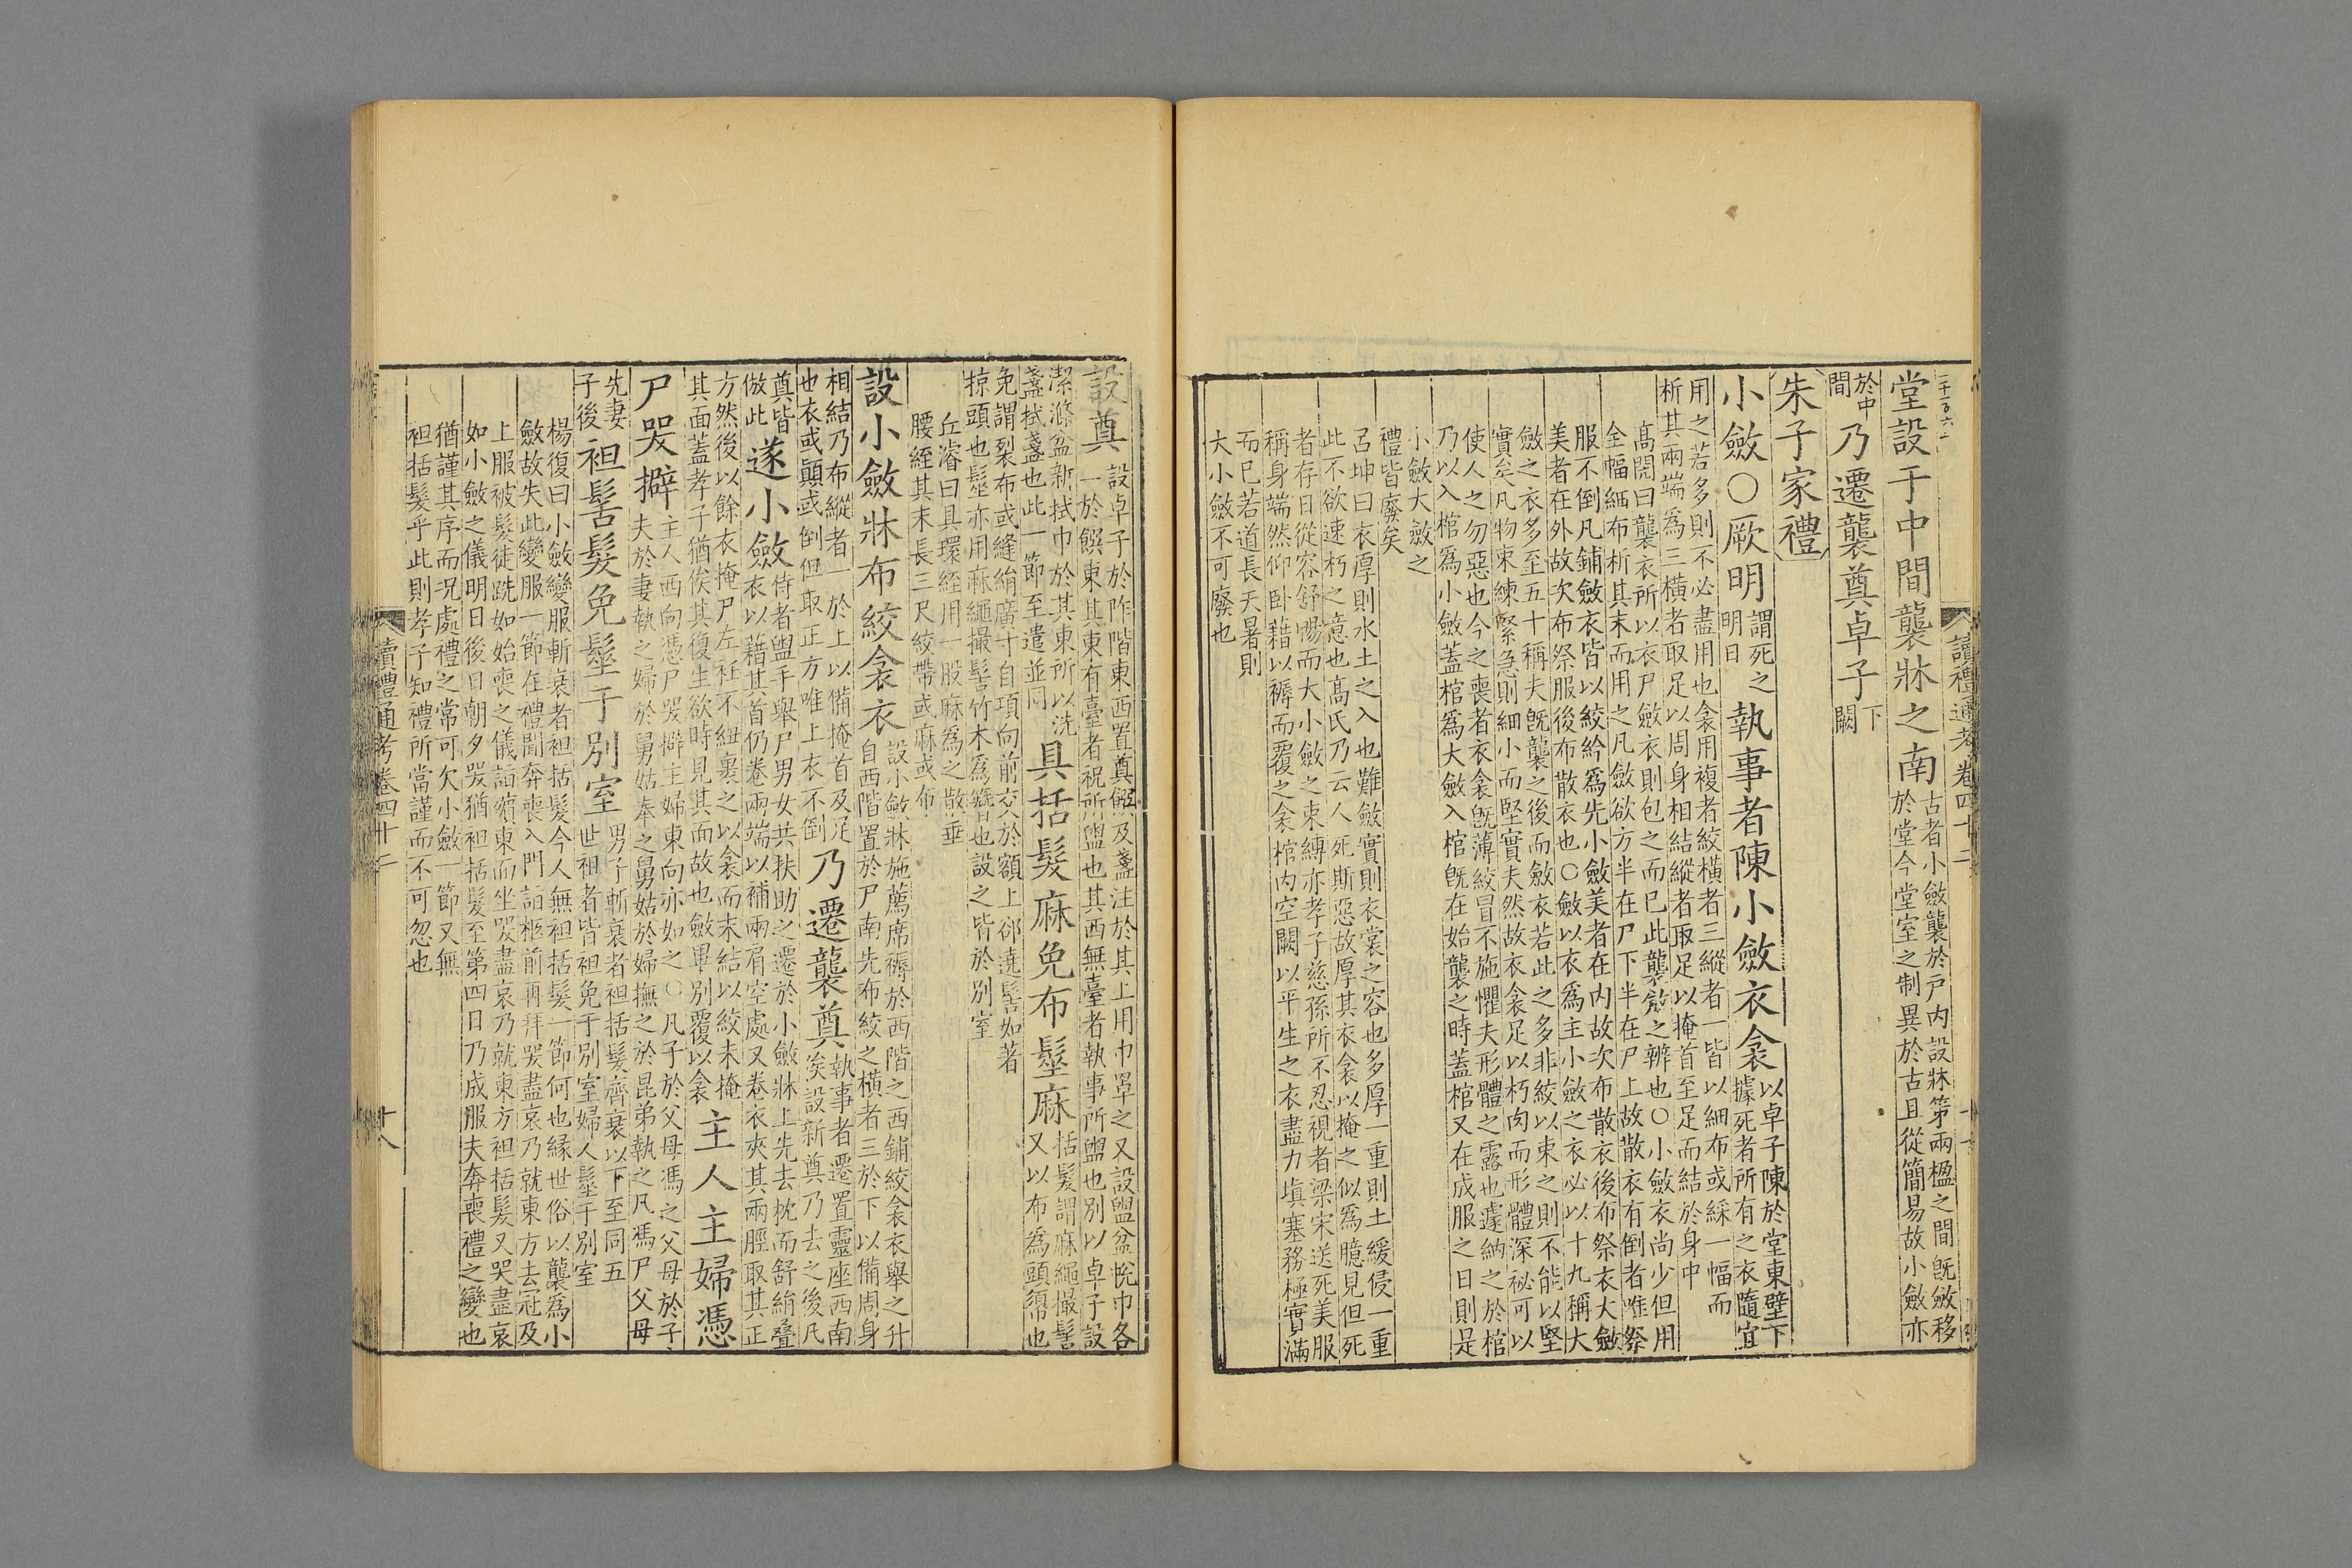 讀禮通考卷四十二
堂設于中間襲牀之南
古者小斂襲於戸内設牀第兩楹之間旣斂移
於堂今堂室之制異於古且從簡易故小斂亦
於中
間
乃遷襲奠卓子
下
闕
朱子家禮
小斂○厥明
謂死之
明日
執事者陳小斂衣衾
以卓子陳於堂東壁下
據死者所有之衣隨宜
用之若多則不必盡用也衾用複者絞橫者三縱者一皆以細布或綵一幅而
析其兩端爲三橫者取足以周身相結縱者取足以掩首至足而結於身中
高閌曰襲衣所以衣尸斂衣則包之而已此襲斂之辨也○小斂衣尚少但用
全幅緬布析其末而用之凡斂欲方半在尸下半在尸上故散衣有倒者唯祭
服不倒凡鋪斂衣皆以絞紟爲先小斂美者在内故次布散衣後布祭衣大斂
美者在外故次布祭服後布散衣也○斂以衣爲主小斂之衣必以十九稱大
斂之衣多至五十稱夫旣襲之後而斂衣若此之多非絞以束之則不能以堅
實矣凡物束練緊急則細小而堅實夫然故衣衾足以朽肉而形體深祕可以
使人之勿惡也今之喪者衣衾旣薄絞冒不施懼夫形體之露也遽納之於棺
乃以入棺爲小斂蓋棺爲大斂入棺旣在始襲之時蓋棺又在成服之日則是
小斂大斂之
禮皆廢矣
呂坤曰衣厚則水土之入也難斂實則衣裳之容也多厚一重則土緩侵一重
此不欲速朽之意也高氏乃云人死斯惡故厚其衣衾以掩之似爲臆見但死
者存日從容舒暢而大小斂之束縛亦孝子慈孫所不忍視者梁宋送死美服
稱身端然仰卧藉以褥而覆之衾棺内空闕以平生之衣盡力塡塞務極實滿
而已若道長天暑則
大小斂不可廢也
設奠
設卓子於阼階東西置奠饌及盞注於其上用巾罩之又設盥盆帨巾各
一於饌東其東有臺者祝所盥也其西無臺者執事所盥也別以卓子設
潔滌盆新拭巾於其東所以洗
盞拭盞也此一節至遣並同
具括髮麻免布髽麻
括髮謂麻繩撮髻
又以布爲頭䋶也
免謂裂布或縫絹廣寸自項向前交於額上郤遶髻如著
掠頭也髽亦用麻繩撮髻竹木爲簪也設之皆於別室
丘濬曰具環絰用一股麻爲之散垂
腰絰其末長三尺絞帶或麻或布
設小斂牀布絞衾衣
設小斂牀施薦席褥於西階之西鋪絞衾衣舉之升
自西階置於尸南先布絞之橫者三於下以備周身
相結乃布縱者一於上以備掩首及足
也衣或顚或倒但取正方唯上衣不倒
乃遷襲奠
執事者遷置靈座西南
俟設新奠乃去之後凡
奠皆
倣此
遂小斂
侍者盥手舉尸男女共扶助之遷於小斂牀上先去枕而舒絹疊
衣以藉其首仍卷兩端以補兩肩空處又卷衣夾其兩脛取其正
方然後以餘衣掩尸左衽不紐裹之以衾而未結以絞未掩
其面蓋孝子猶俟其復生欲時見其面故也斂畢別覆以衾
主人主婦憑
尸哭擗
主人西向憑尸哭擗主婦東向亦如之○凡子於父母馮之父母於子
夫於妻執之婦於舅姑奉之舅姑於婦撫之於昆弟執之凡馮尸父母
先妻
子後
袒髻髮免髽于別室
男子斬衰者袒括髮齊衰以下至同五
世祖者皆袒免于別室婦人髽于別室
楊復曰小斂變服斬衰者袒括髮今人無袒括髮一節何也緣世俗以襲爲小
斂故失此變服一節在禮聞奔喪入門詣柩前再拜哭盡哀乃就東方去冠及
上服被髮徒跣如始喪之儀詣殯東而坐哭盡哀乃就東方袒括髮又哭盡哀
如小斂之儀明日後日朝夕哭猶袒括髮至第四日乃成服夫奔喪禮之變也
猶謹其序而況處禮之常可欠小斂一節又無
袒括髮乎此則孝子知禮所當謹而不可忽也
讀禮通考卷四十二
十八